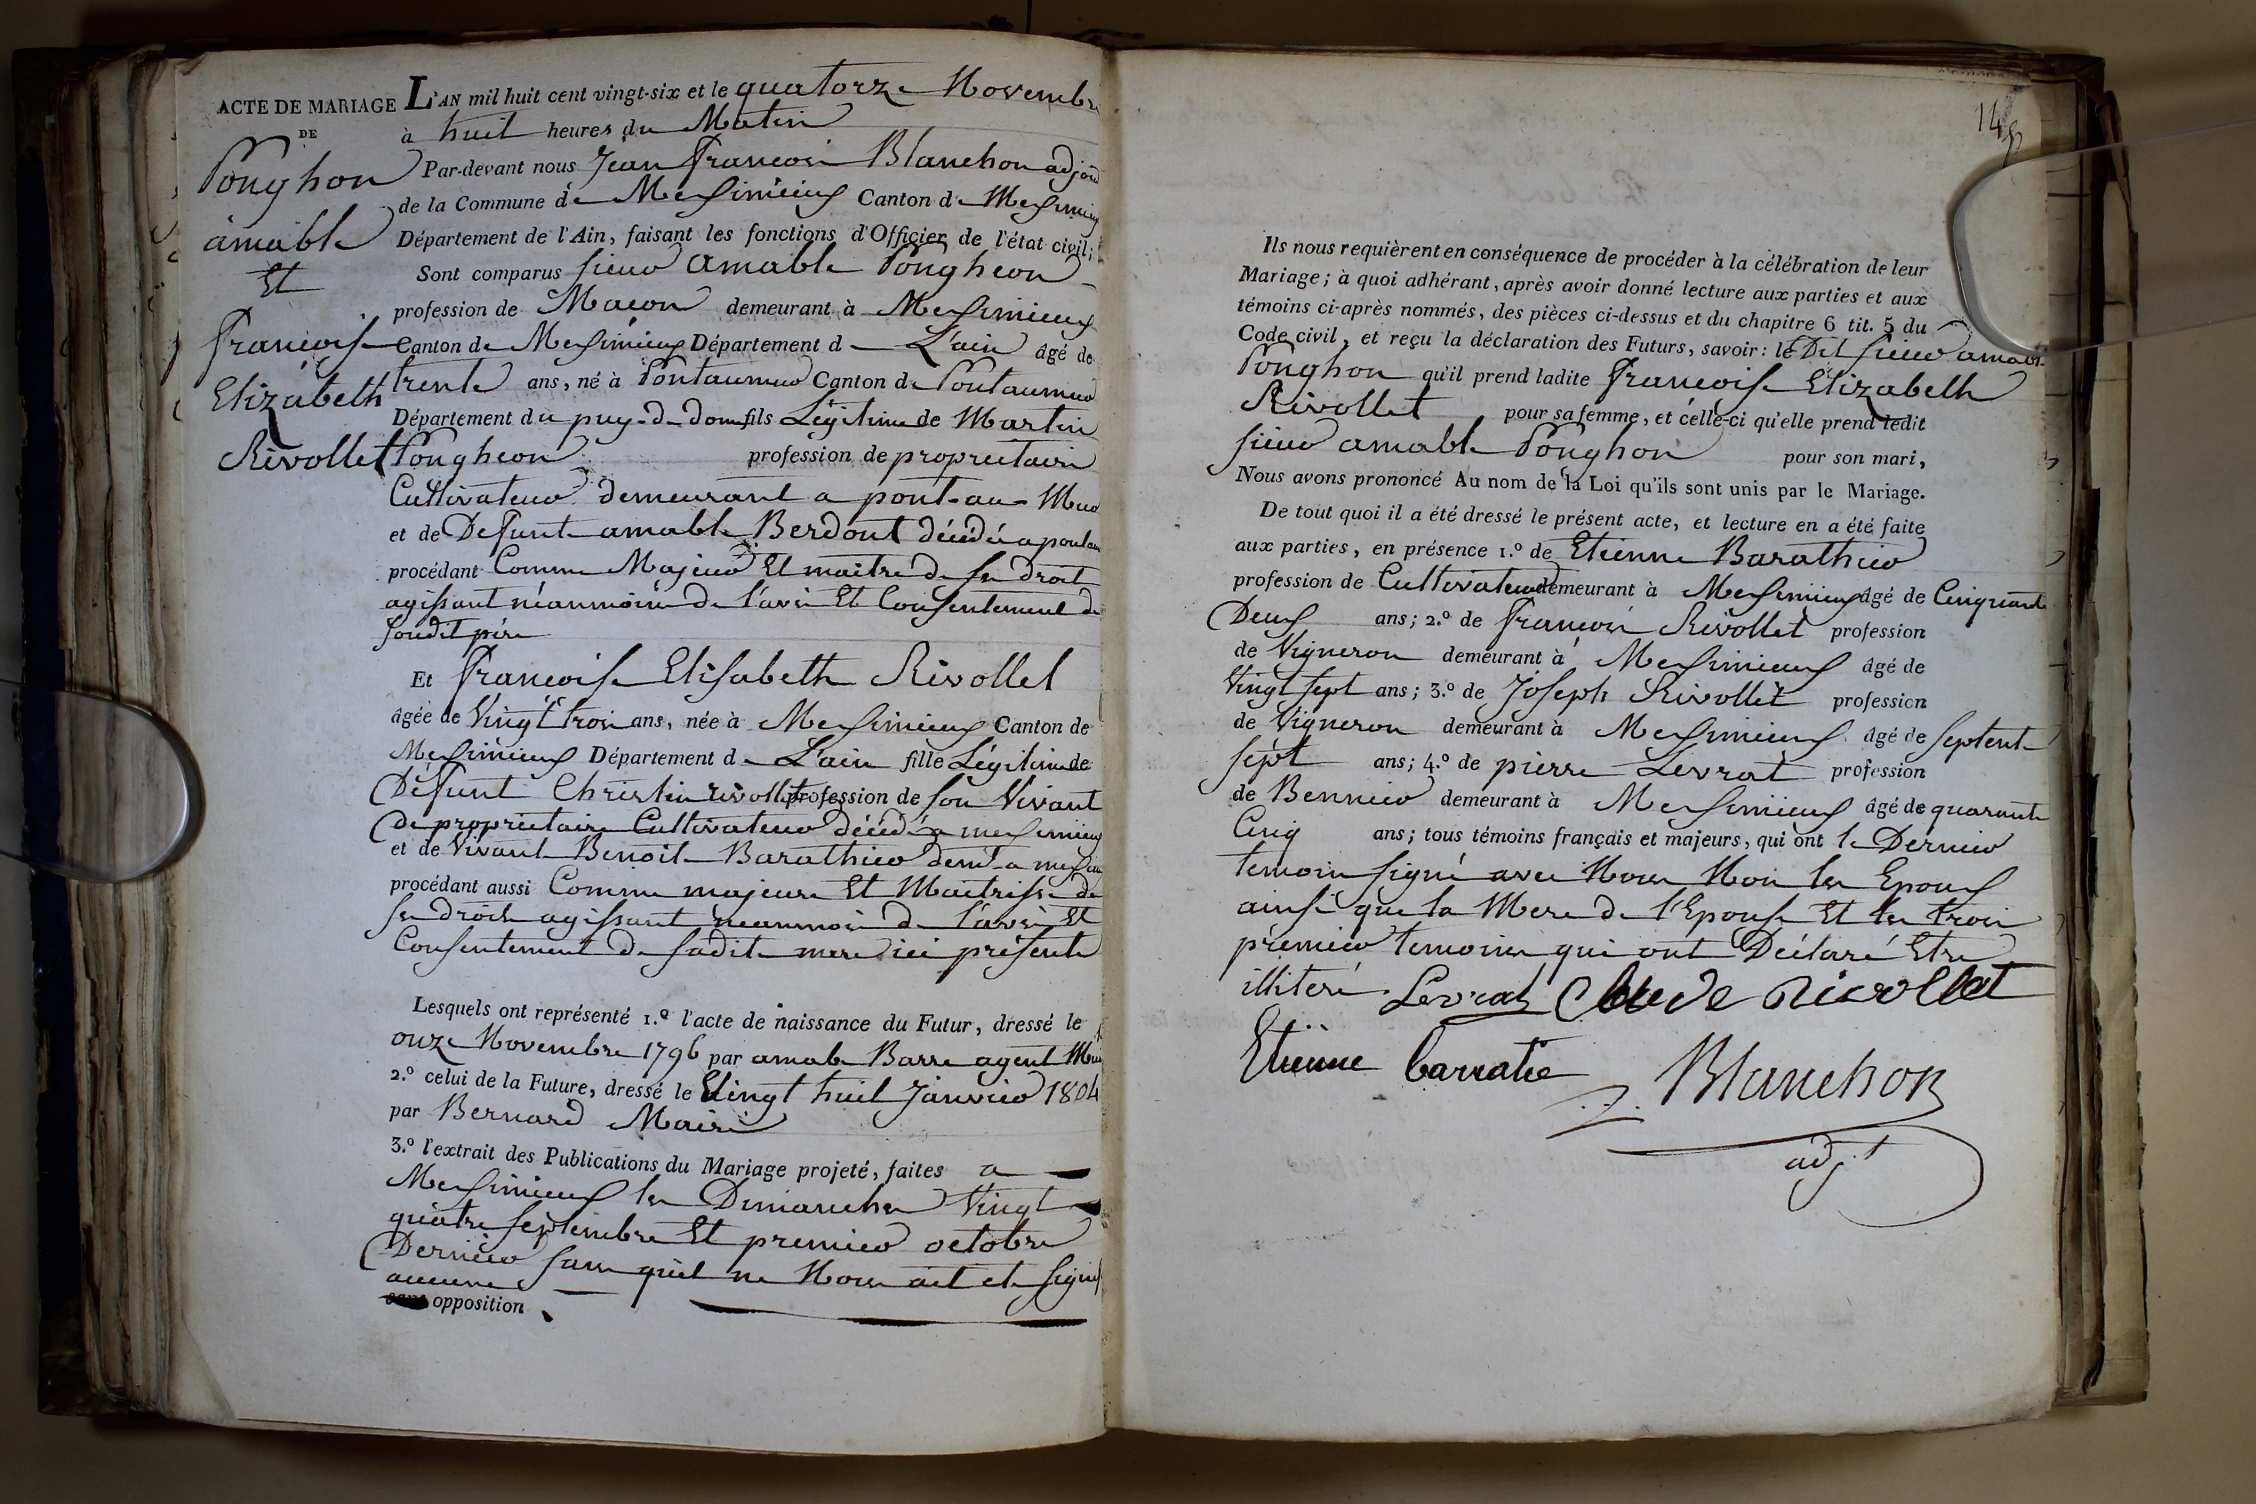 ACTE DE MARIAGE
DE
Ponghon
amable
Et
françoise
Elizabeth
Rivollet
L'AN mil huit cent vingt-six et le quatorze Novembre
à huit heures du Matin
Par-devant nous Jean francois Blanchon adjoint
de la Commune de Messimieux Canton de Messimieux
Département de l'Ain, faisant les fonctions d'Officier de l'état civil;
Sont comparus sieur amable Pongheon
profession de Macon demeurant à Messimieux
Canton de Messimieux Département de L'ain âgé de
trente ans, né à Pontaumur Canton de Pontaumur
Département du puy-de-dome fils Légitime de Martin
Pongheon profession de proprietaire
Cultivateur demeurant a pont-au-Mur
et de Defunte amable Berdont décédée a pontau
procédant Comme Majeur Et maitre de ses droit
agissant néanmoins de l'avis Et Consentement de
soudit père
Et francoise Elisabeth Rivollet
âgée de Vingt trois ans, née à Messimieux Canton de
Messimieux Département de L'ain fille Légitime de
Defunt Christin rivollet profession de son Vivant
de proprietaire Cultivateur décédé a messimieux
et de Vivant Benoite Barathier demt a messim
procédant aussi Comme majeure Et Maitrisse de
ses droits agissant neanmoins de l'avis Et
Consentement de sadite mere ici présente
Lesquels ont représenté 1.º l'acte de naissance du Futur, dressé le
onze Novembre 1796 par amable Barre agent Mun
2.º celui de la Future, dressé le Vingt huit Janvier 1804
par Bernard Maire
3.º l'extrait des Publications du Mariage projeté, faites a
Messimieux les Dimanches Vingt
quatre septembre Et premier octobre
Dernier sans quil ne Nous ait ete signé
aucune
sans opposition
145
Ils nous requièrent en conséquence de procéder à la célébration de leur
Mariage; à quoi adhérant, après avoir donné lecture aux parties et aux
témoins ci-après nommés, des pièces ci-dessus et du chapitre 6 tit. 5 du
Code civil, et reçu la déclaration des Futurs, savoir: le Dit sieur amable
Ponghon qu'il prend ladite francoise Elizabeth
Rivollet pour sa femme, et celle-ci qu'elle prend ledit
sieur amable Ponghon pour son mari,
Nous avons prononcé Au nom de la Loi qu'ils sont unis par le Mariage.
De tout quoi il a été dressé le présent acte, et lecture en a été faite
aux parties, en présence 1.º de Etienne Barathier
profession de Cultivateur demeurant à Messimieux âgé de Cinquante
Deux ans; 2.º de francois Rivollet profession
de Vigneron demeurant à Messimieux âgé de
Vingt sept ans; 3.º de Joseph Rivollet profession
de Vigneron demeurant à Messimieux âgé de septente
sept ans; 4.º de pierre Levrat profession
de Bennier demeurant à Messimieux âgé de quarante
Cinq ans; tous témoins français et majeurs, qui ont le Dernier
temoin signé avec Nous Non les Epoux
ainsi que la Mere de l'Epouse Et les trois
premier temoins qui ont Déclaré Etre
illiteré. Levrat Claude Rivollet
Etienne barratie Blanchon
adjt